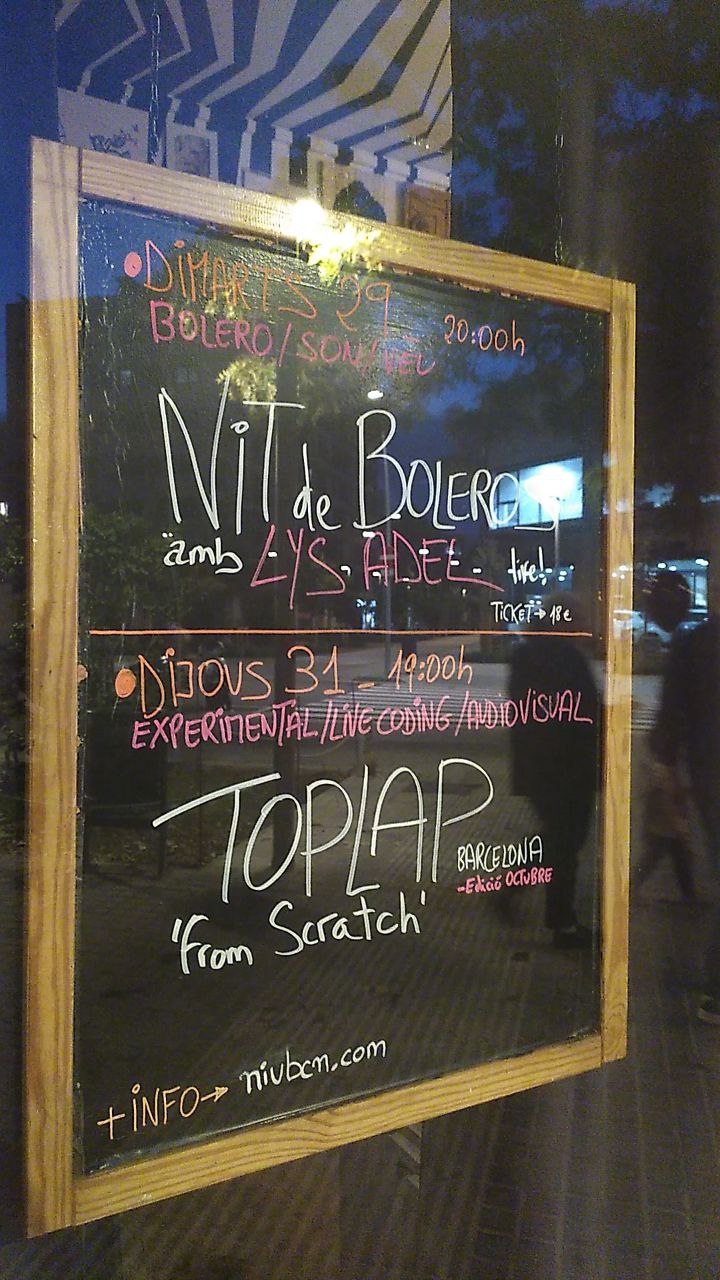 DIMARTS 29 20:00h
BOLERO/SON/
NIT de BOLEROS
amb LYS ADEL
TICKET→18€
DIJOUS 31 - 19:00h
EXPERIMENTAL/LIVE CODING/AUDIOVISUAL
TOPLAP
BARCELONA
-Edició OCTUBRE
'From Scratch'
+INFO→ niubcn.com